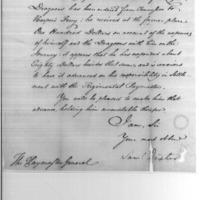 Dragoons has been ordered from Carington to
Harpers Ferry; he received at the former place
One Hundred Dollars on account of the expenses
of himself and the Dragoons with him on the
Journey. It appears that he has expended about
Eighty Dollars besides that sum, and is anxious
to have it advanced on his responsibility in Settle
ment with the Regimental Paymaster.
You will be pleased to make him that
advance, holding him accountable therefor.
I am, Sir
Your most obed
Sam
The Paymaster General